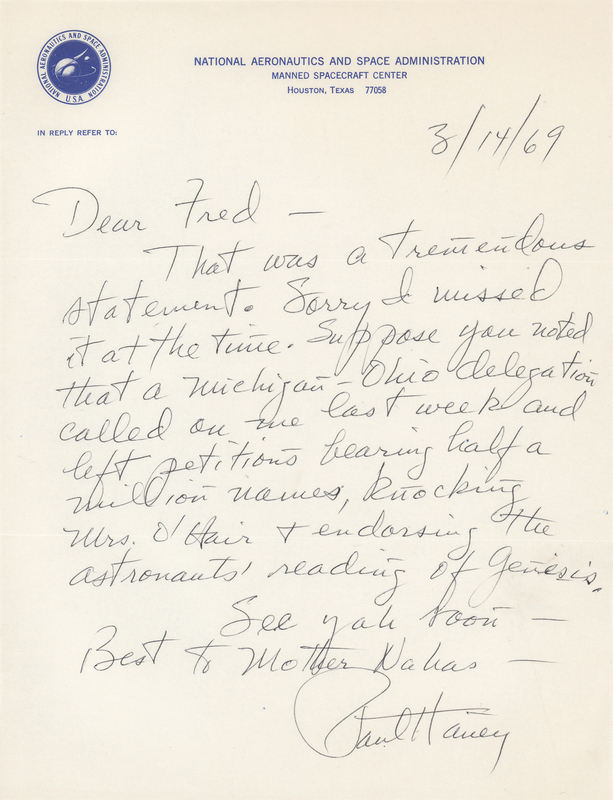 NATIONAL AERONAUTICS AND SPACE ADMINISTRATION
U.S.A.
NATIONAL AERONAUTICS AND SPACE ADMINISTRATION
MANNED SPACECRAFT CENTER
HOUSTON, TEXAS 77058
IN REPLY REFER TO:
3/14/69
Dear Fred —
That was a tremendous
statement. Sorry I missed
it at the time. Suppose you noted
that a Michigan-Ohio delegation
called on me last week and
left petitions bearing half a
million names, knocking
Mrs. O'Hair & endorsing the
astronauts' reading of Genesis.
See yah soon —
Best to Mother Nahas —
Paul Haney